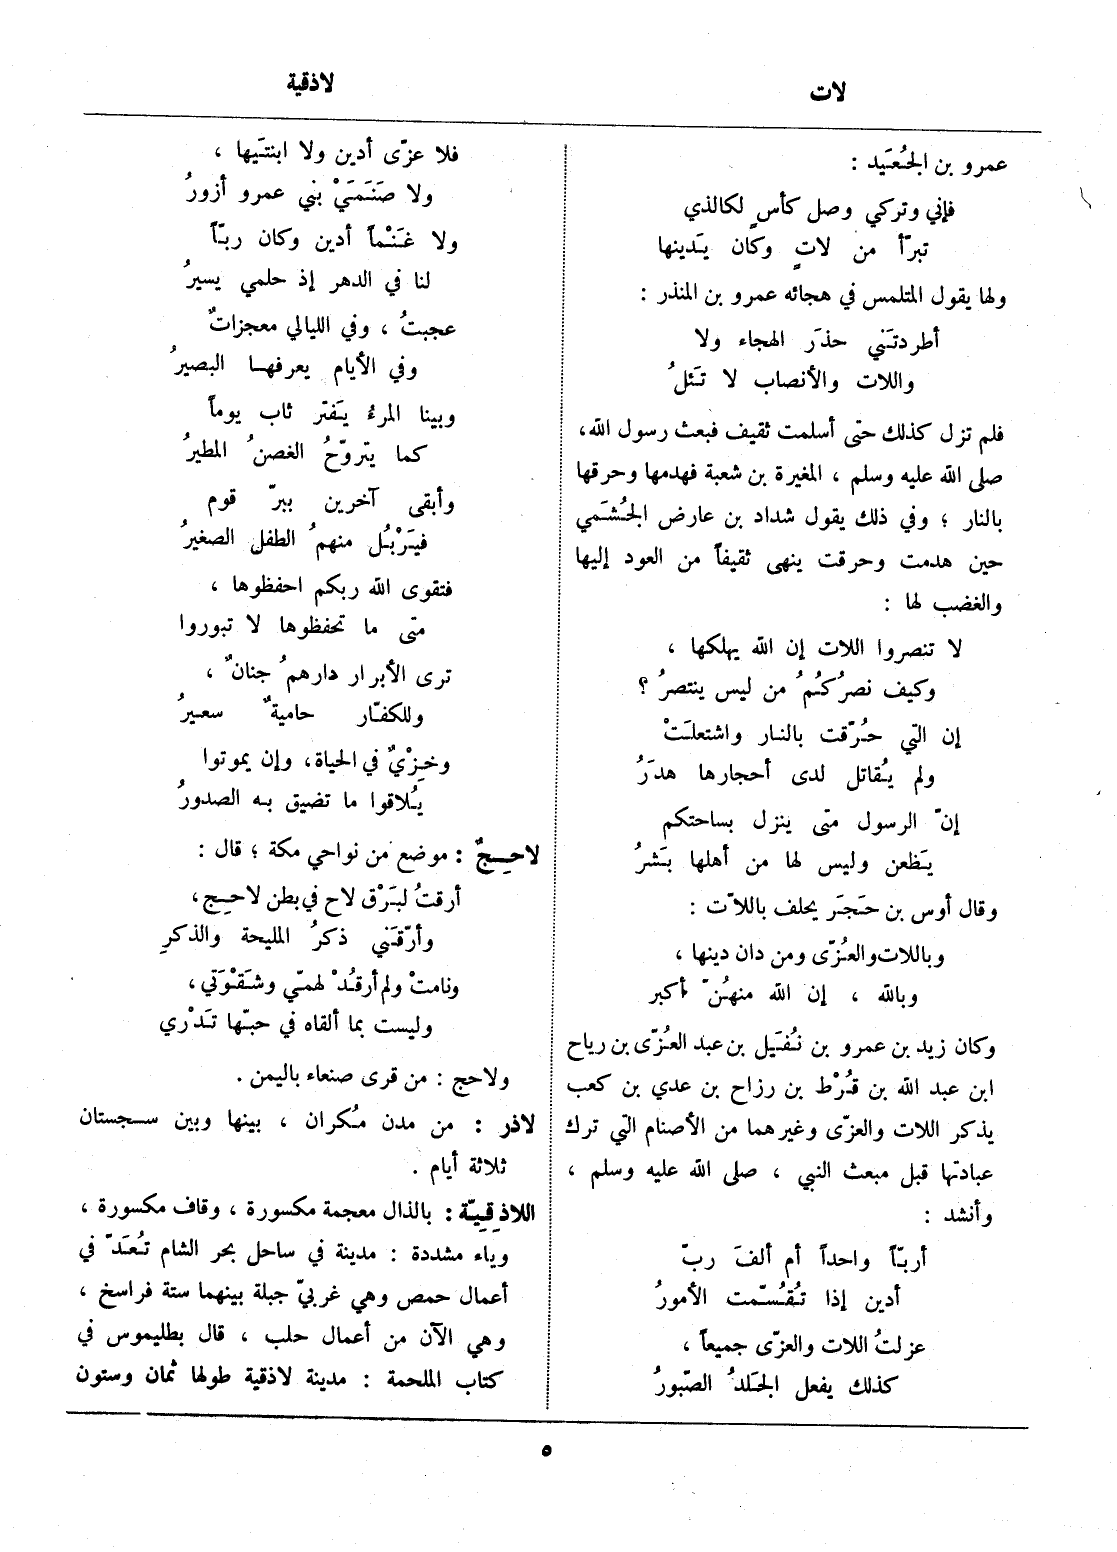 لات
لاذقية
عمرو بن الجُعَيد :
فإني وتركي وصل كأسٍ لكالذي
تبرّأ من لاتٍ وكان يَدينها
ولها يقول المتلمس في هجائه عمرو بن المنذر :
أطردتَني حذَر الهجاء ولا
واللات والأنصاب لا تَئلُ
فلم تزل كذلك حتى أسلمت ثقيف فبعث رسول الله،
صلى الله عليه وسلم ، المغيرة بن شعبة فهدمها وحرقها
بالنار ؛ وفي ذلك يقول شداد بن عارض الجُشَمي
حين هدمت وحرقت ينهى ثقيفاً من العود إليها
والغضب لها :
لا تنصروا اللات إن الله يهلكها ،
وكيف نصرُكُمُ من ليس ينتصرُ ؟
إن التي حُرّقت بالنار واشتعلَتْ
ولم يُقاتل لدى أحجارها هدَرُ
إنّ الرسول متى ينزل بساحتكم
يَظعن وليس لها من أهلها بَشرُ
وقال أوس بن حَجَر يحلف باللاّت :
وباللات والعُزّى ومن دان دينها ،
وبالله ، إن الله منهُنّ أكبر
وكان زيد بن عمرو بن نُفَيل بن عبد العُزّى بن رياح
ابن عبد الله بن قُرْط بن رزاح بن عدي بن كعب
يذكر اللات والعزّى وغيرهما من الأصنام التي ترك
عبادتها قبل مبعث النبي ، صلى الله عليه وسلم ،
وأنشد :
أربّاً واحداً أم ألفَ ربّ
أدين إذا تُقُسّمت الأمورُ
عزلتُ اللات والعزّى جميعاً ،
كذلك يفعل الجَلدُ الصّبورُ
فلا عزّى أدين ولا ابنتَيها ،
ولا صَنَمَيْ بني عمرو أزورُ
ولا غَنْماً أدين وكان ربّاً
لنا في الدهر إذ حلمي يسيرُ
عجبتُ ، وفي الليالي معجزاتٌ
وفي الأيام يعرفهـا البصيرُ
وبينا المرءُ يَفتر ثاب يوماً
كما يتروّحُ الغصنُ المطيرُ
وأبقى آخرين ببرّ قوم
فيَرْبُل منهمُ الطفل الصغيرُ
فتقوى الله ربكم احفظوها ،
متى ما تحفظوها لا تبوروا
ترى الأبرار دارهمُ جنانٌ ،
وللكفّار حاميةٌ سعيرُ
وخِزْيٌ في الحياة، وإن يموتوا
يُلاقوا ما تضيق به الصدورُ
لاحِجٌ : موضع من نواحي مكة ؛ قال :
أرقتُ لبَرْق لاح في بطن لاحِج،
وأرّقَني ذكرُ المليحة والذكرِ
ونامتْ ولم أرقُدْ لهمّي وشَقْوَتي،
وليست بما ألقاه في حبّها تَدْري
ولاحج : من قرى صنعاء باليمن .
لاذر : من مدن مُكران ، بينها وبين سجستان
ثلاثة أيام .
اللاذِقِيّة : بالذال معجمة مكسورة ، وقاف مكسورة ،
وياء مشددة : مدينة في ساحل بحر الشام تُعَدّ في
أعمال حمص وهي غربيّ جبلة بينهما ستة فراسخ ،
وهي الآن من أعمال حلب ، قال بطليموس في
كتاب الملحمة : مدينة لاذقية طولها ثمان وستون
٥